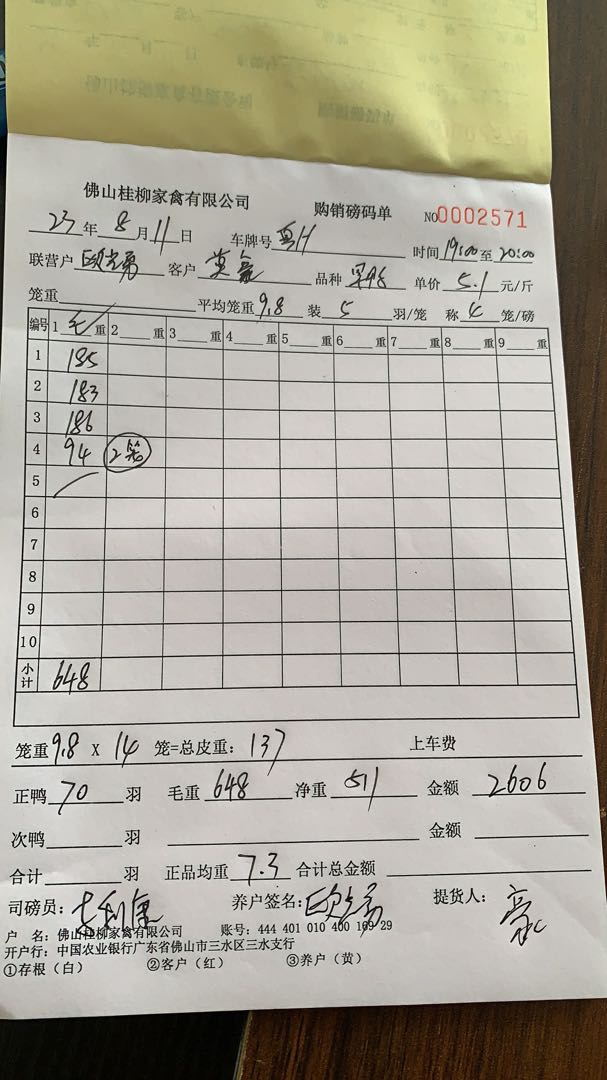 佛山桂柳家禽有限公司 购销磅码单 NO0002571
23年8月11日 车牌号 粤H 时间19:00至20:00
联营户 客户 品种 单价 5.1 元/斤
笼重 平均笼重9.8 装 5 羽/笼 称 4 笼/磅
编号 1 毛 重 2 重 3 重 4 重 5 重 6 重 7 重 8 重 9 重
1 185
2 183
3 186
4 94 2笼
5
6
7
8
9
10
小计 648
笼重9.8 X 14 笼=总皮重: 137 上车费
正鸭 70 羽 毛重 648 净重 511 金额 2606
次鸭 羽 金额
合计 羽 正品均重 7.3 合计总金额
司磅员: 养户签名: 提货人:
户 名: 佛山桂柳家禽有限公司 账号: 444 401 010 400 169 29
开户行: 中国农业银行广东省佛山市三水区三水支行
①存根（白） ②客户（红） ③养户（黄）